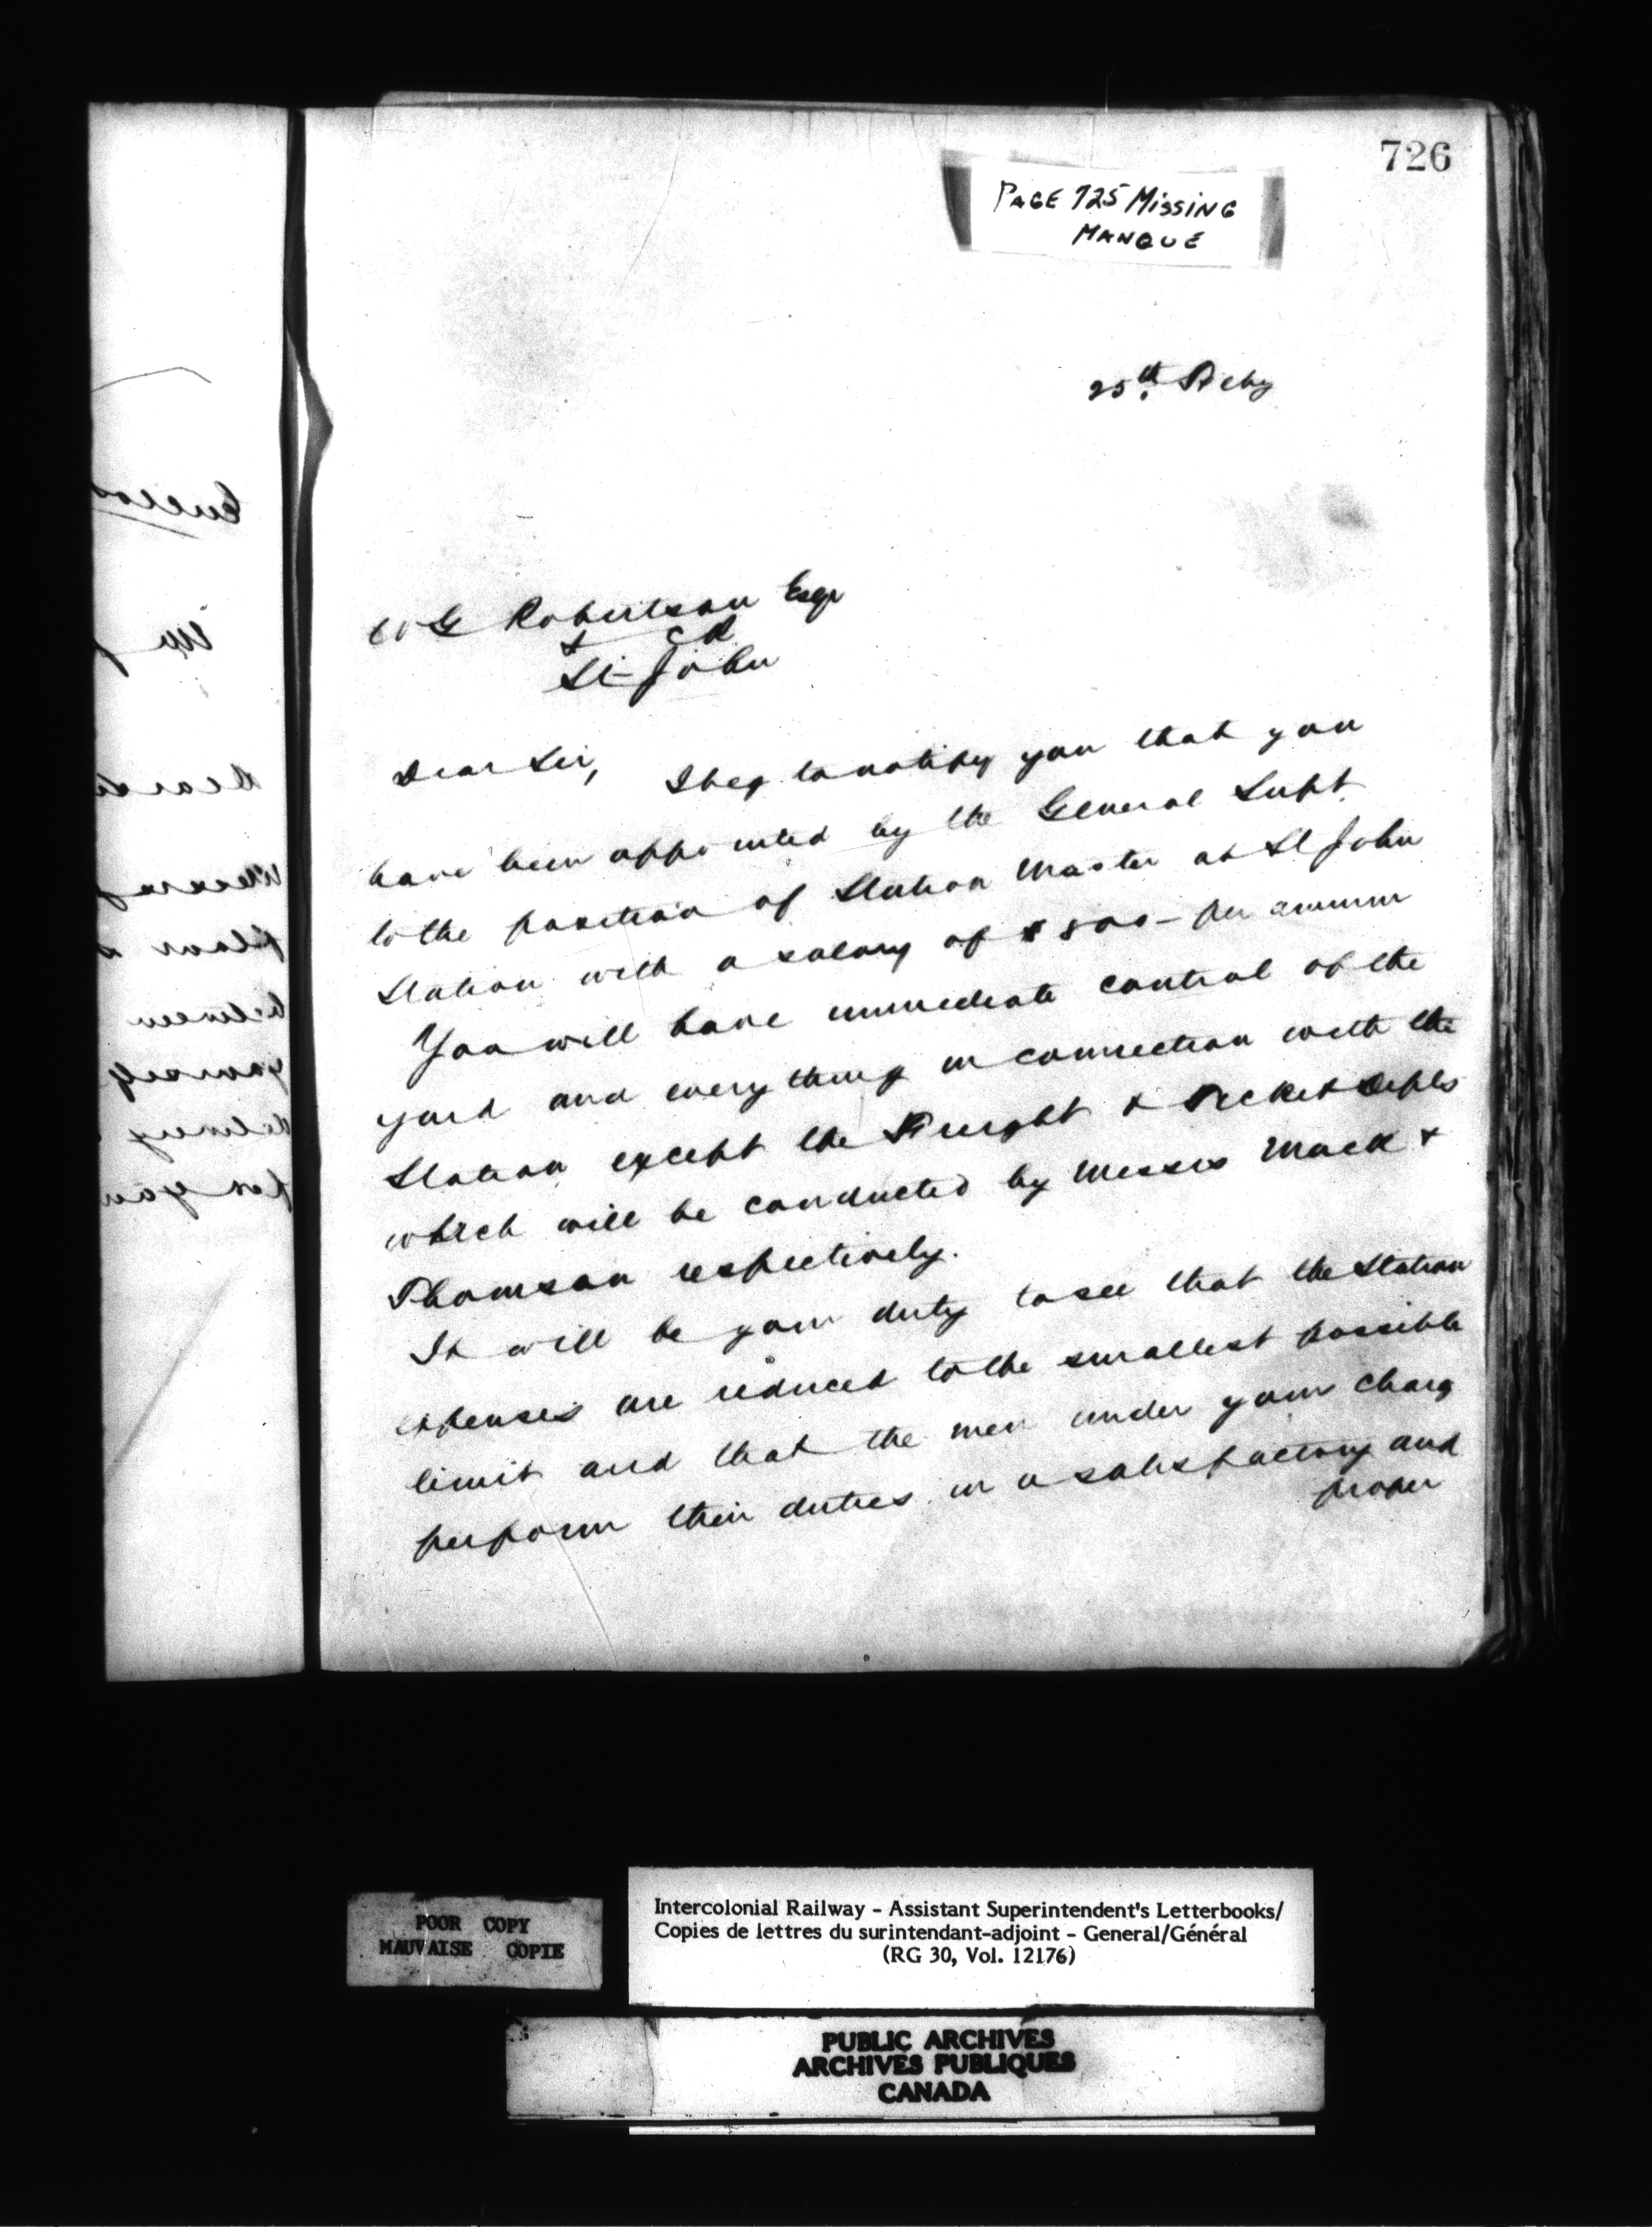 726
PAGE 725 MISSING
MANQUE
25th. Feby
W G Robertson Esqr
I C R
St-John
Dear Sir, I beg to notify you that you
have been appointed by the General Supt.
to the position of Station Master at St John
Station with a salary of $800- per annum
You will have immediate control of the
yard and everything in connection with the
Station except the Freight & Ticket Depts
which will be conducted by Messrs Mack &
Thomson respectively.
It will be your duty to see that the Station
expenses are reduced to the smallest possible
limit and that the men under your charg
perform their duties in a satisfactory and
proper
POOR COPY
MAUVAISE COPIE
Intercolonial Railway - Assistant Superintendent's Letterbooks/
Copies de lettres du surintendant-adjoint - General/Général
(RG 30, Vol. 12176)
PUBLIC ARCHIVES
ARCHIVES PUBLIQUES
CANADA